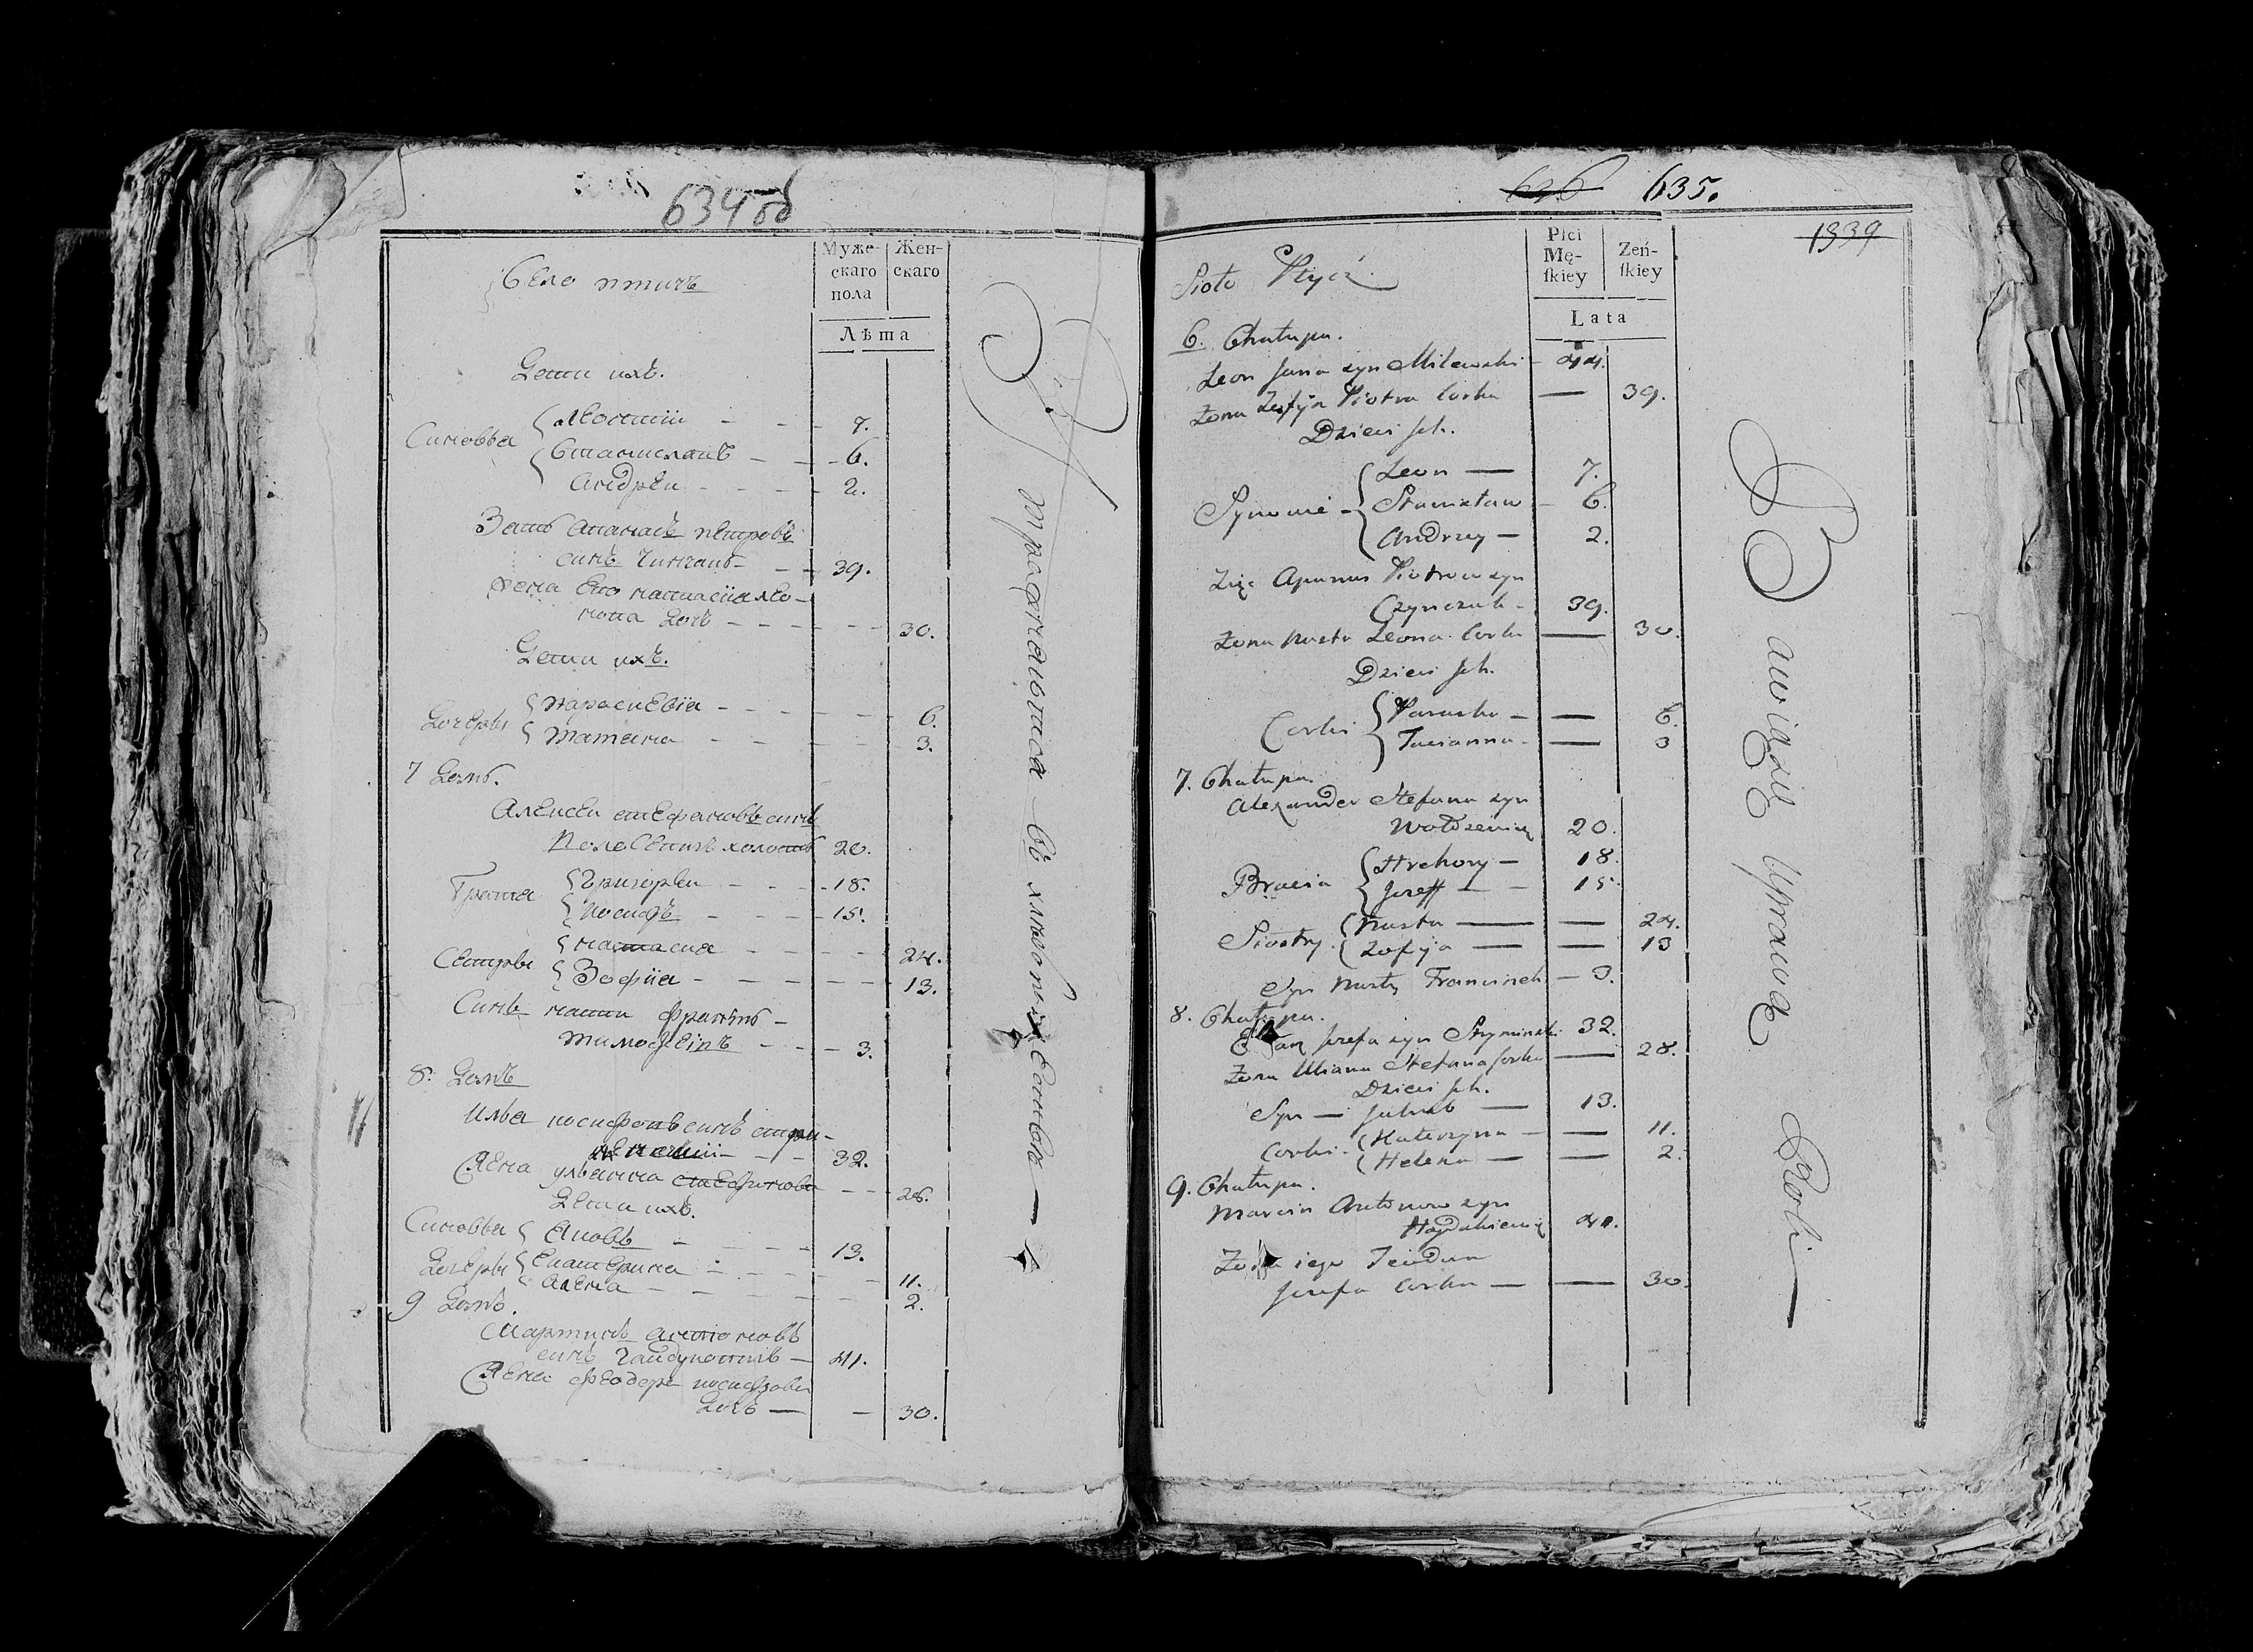 634 об
Село птичъ
Муже-
скаго
пола
Жен-
скаго
Лѣта
Дети ихъ.
Синовья
Леонтіи - - 7.
Станиславъ - - 6.
Андреи - - 2.
Зять Апанасъ петровъ
синъ Чинчакъ - - 39.
Жена Его настасия лео-
нова дочъ - - - 30.
Дети ихъ.
Дочеры
параскевїа - - - 6.
татіана - - - 3.
7 Домъ.
Алексеи стефановъ синъ
холостъ 20.
Братя
Григореи - - 18.
иосифъ - - 15.
Сестры
настасия - - - 24.
Зофиіа - - - 13.
Синъ насти
- - 3.
8. Домъ
Илья иосифовъ синъ
- - 32.
Жена ульянна стефанова - - 28.
Дети ихъ.
Синовья Яковъ - - - 13.
Дочеры Екатерина - - - 11.
Алена - - - 2.
9 Домъ.
Мартинъ антоновъ
синъ Гайдукевичъ - 41.
Жена феодора иосифова
дочъ - - 30.
635.
1339
Sioło Ptycz
Płci
Mę-
ſkiey
Żeń-
ſkiey
Lata
6. Chałupa.
Leon Jana syn Milewski - 44.
Żona Zofija Piotra Corka — 39.
Dzieci Jch.
Synowie
Leon — 7.
Stanisław - 6.
Andrzey — 2.
Zięć Apanas Piotrow syn
Czynczuk - 39.
Żona Nasta Leona Corka — 30.
Dzieci Jch.
Corki
Paraska - — 6.
Tacianna - — 3
7. Chałupa.
Alexander Stefana syn
20.
Bracia
Hrehory — 18.
Jozeff — - 15
Siostry
Nasta — — 24.
Zofija — — 13
Syn Nasty Franciszek — 3.
8. Chałupa.
Jozefa syn 32.
Żona Uliana Stefana Corka — 28.
Dzieci Jch.
Syn — Jakub — 13.
Corki
Katerzyna - — 11.
Helena — — 2.
9. Chałupa.
Marcin Antonow syn
Haydukiewicz 41.
Żona iego Teodora
Jozefa Corka — — 30.